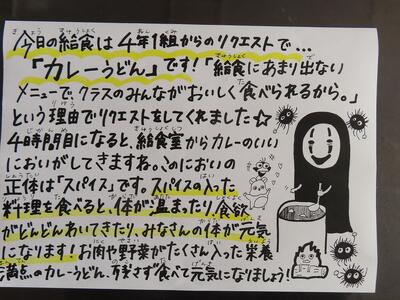 今日の給食は4年1組からのリクエストで...
「カレーうどん」です!「給食にあまり出ない
メニューで、クラスのみんながおいしく食べられるから。」
という理由でリクエストをしてくれました☆
4時間目になると、給食室からカレーのいい
においがしてきますね。このにおいの
正体は「スパイス」です。スパイスの入った
料理を食べると、体が温まったり、食欲
がどんどんわいてきたり、みなさんの体が元気
になります!お肉や野菜がたくさん入った栄養
満点のカレーうどん、残さず食べて元気になりましょう!